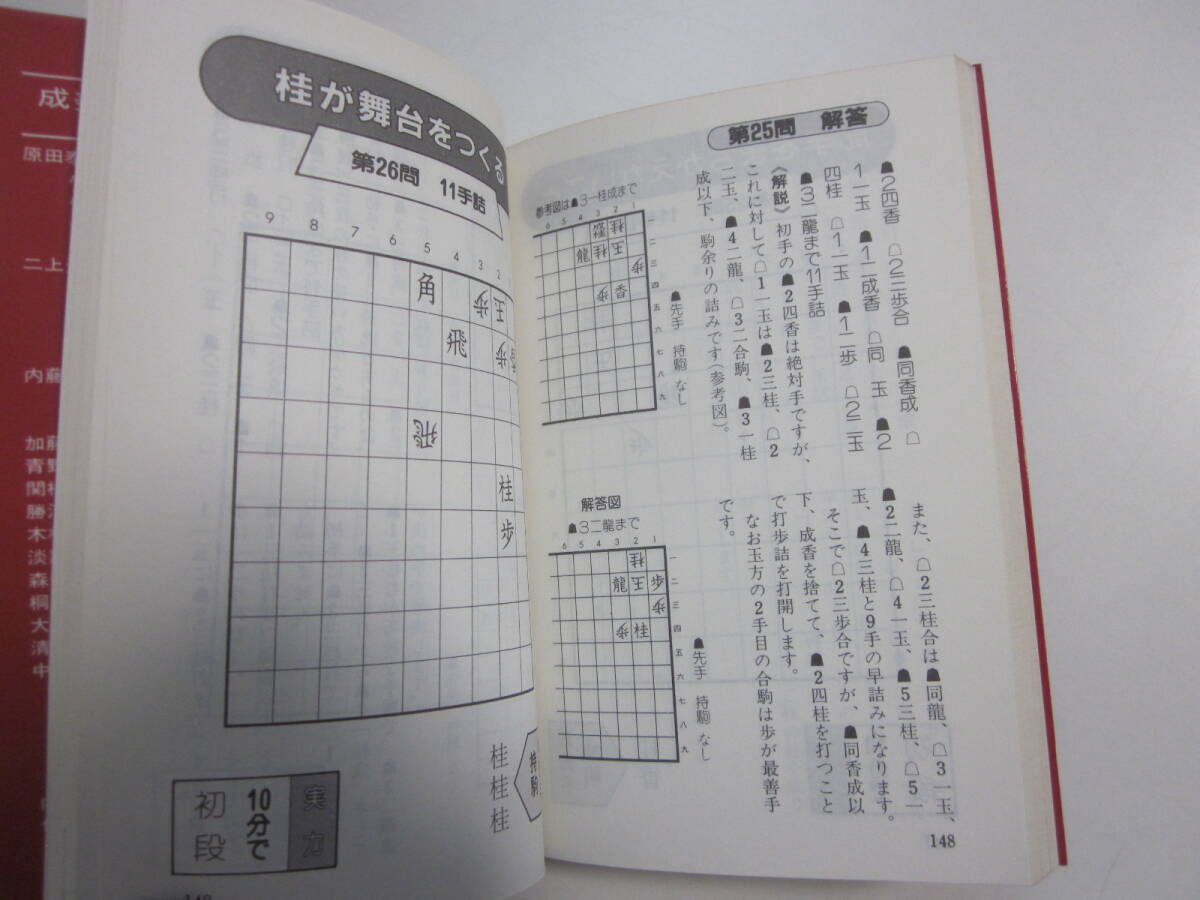 桂が舞台をつくる
第26問 11手詰
9 8 7 6 5 4 3 2
角
歩 玉
飛
歩
飛
桂
歩
持駒
桂
桂
桂
実力
10分で
初段
第25問 解答
☗2四香 ☖2三歩合 ☗同香成 ☖
1一玉 ☗1二成香 ☖同 玉 ☗2
四桂 ☖1一玉 ☗1二歩 ☖2二玉
☗3二龍まで11手詰
《解説》初手の☗2四香は絶対手ですが、
これに対して☖1一玉は☗2三桂、☖2
二玉、☗4二龍、☖3二合駒、☗3一桂
成以下、駒余りの詰みです(参考図)。
参考図は☗3一桂成まで
6 5 4 3 2 1
一
二
三
四
五
六
七
八
九
桂
龍 桂 玉
歩
歩 香
☗先手 持駒 なし
また、☖2三桂合は☗同龍、☖3一玉、
☗2二龍、☖4一玉、☗5三桂、☖5一
玉、☗4三桂と9手の早詰みになります。
そこで☖2三歩合ですが、☗同香成以
下、成香を捨てて、☗2四桂を打つこと
で打歩詰を打開します。
なお玉方の2手目の合駒は歩が最善手
です。
解答図
☗3二龍まで
6 5 4 3 2 1
一
二
三
四
五
六
七
八
九
桂
龍 玉 歩
歩
歩 桂
☗先手 持駒 なし
148
成
原田
二上
内藤
加藤
青野
関
勝
木
淡
森
桐
大
清
中